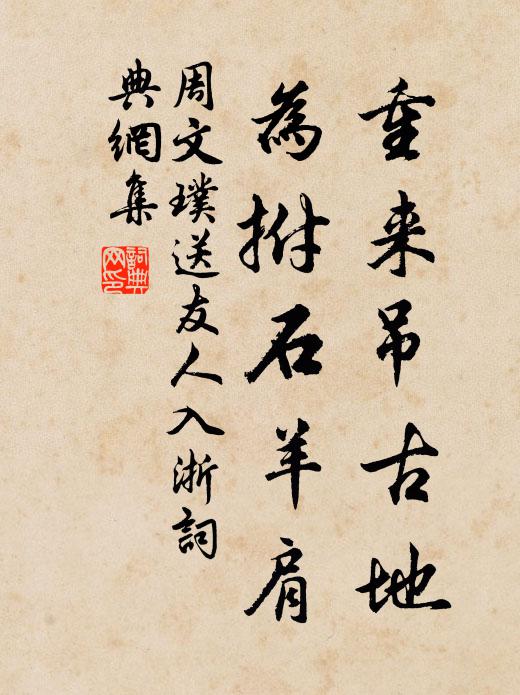 重来吊古地
為拊石羊肩
周文璞送友人入浙詞
典網集
詞典网印